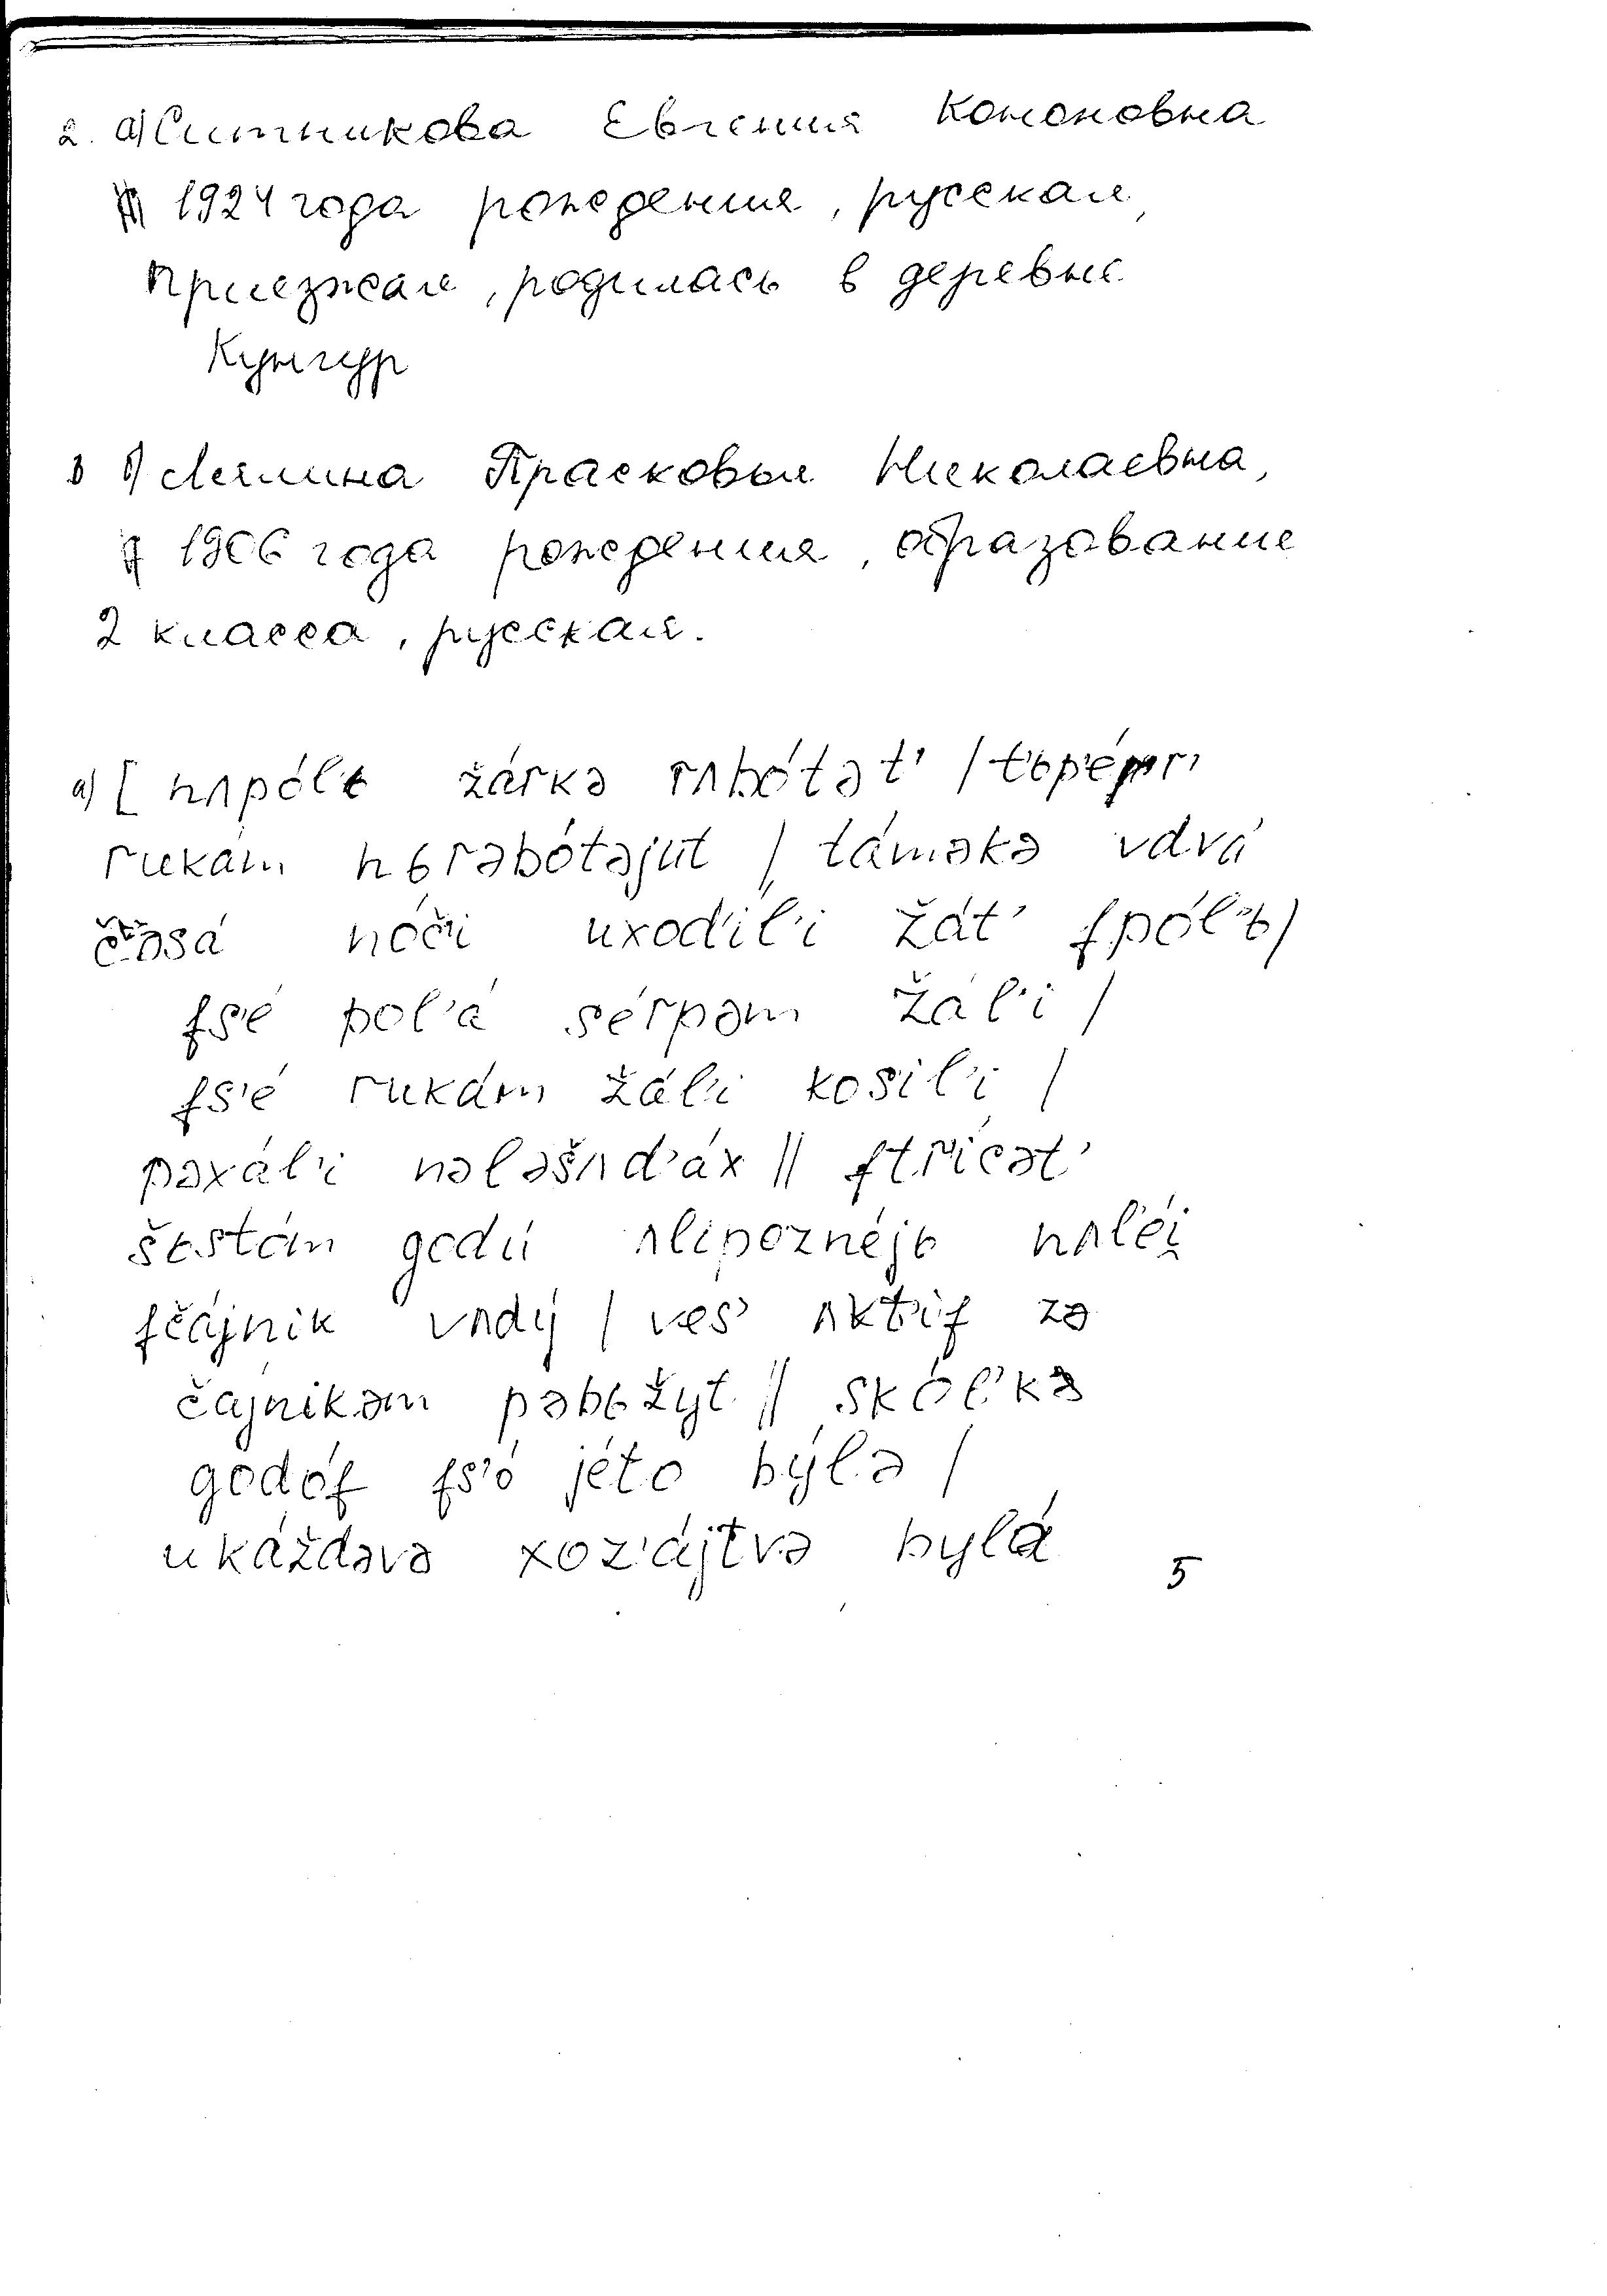 2. а) Ситникова Евгения Кононовна
1924 года рождения, русская,
приезжая, родилась в деревне
Кунгур
в б) Лямина Прасковья Николаевна,
1906 года рождения, образование
2 класса, русская.
а) [ nʌpól'ь žárkə rʌbótət' /
rukám nьrəbótəjut / táməkə vdvá
čьsá nóči uxod'íl'i žát' fpól'ь /
fs'é pol'á s'érpəm žál'i /
fs'é rukám žál'i kosíl'i /
pəxál'i nələšʌd'áx || ftr'ícət'
šьstóm godú ʌl'ipoznéjь nʌl'éj
fčájnik vʌdý / ves' ʌkt'íf zə
čájnikəm pəbьžýt || skól'kə
godóf fs'ó jéto býlə /
ukáždəvə xoz'ájtvə bylá
5